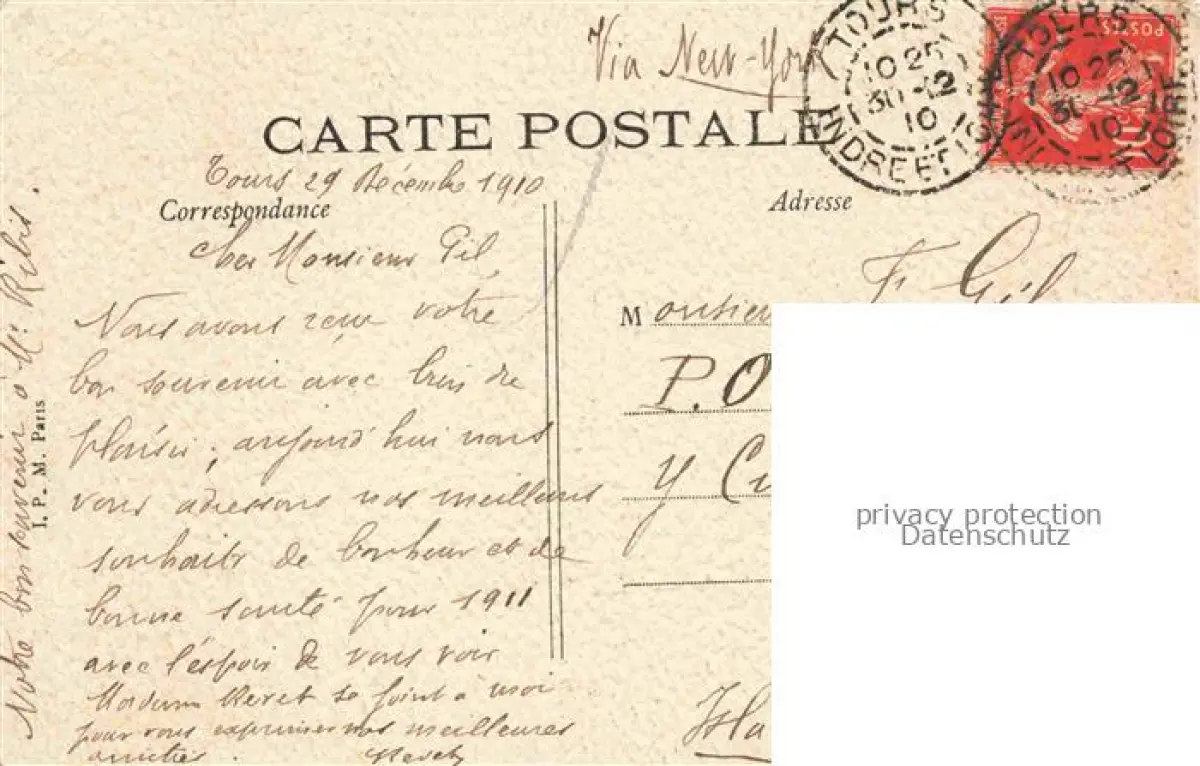 Via New-York
TOURS
10 25
30 -12
10
INDRE ET LOIRE
TOURS
10 25
30 -12
10
LOIRE
POSTES
10
CARTE POSTALE
Tours 29 Décembre 1910
Correspondance
Adresse
Cher Monsieur Gil
Nous avons reçu votre
bon souvenir avec bien de
plaisir, aujourd'hui nous
vous adressons nos meilleurs
souhaits de bonheur et de
bonne santé pour 1911
avec l'espoir de vous voir
Madame se joint à moi
pour vous exprimer nos meilleures
amitiés.
Notre bon souvenir à Mr
I. P. M. Paris
F. Gil
Monsieur
P.O
y
Isla
privacy protection
Datenschutz